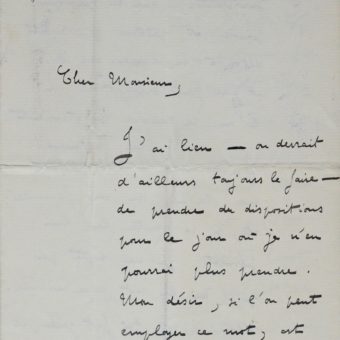 Cher Monsieur,
J'ai lieu — on devrait
d'ailleurs toujours le faire —
de prendre de dispositions
pour le jour où je n'en
pourrai plus prendre.
Mon désir, si l'on peut
employer ce mot, est